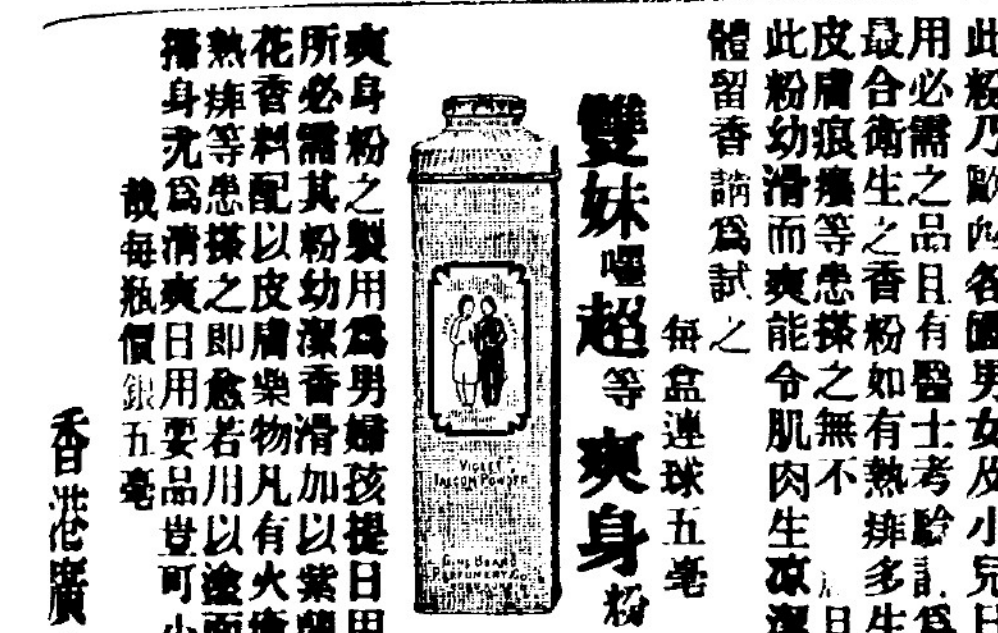 此粉乃歐西各國男女及小兒日
用必需之品且有醫士考驗訂爲
最合衛生之香粉如有熱痱多生
皮膚痕癢等患搽之無不
此粉幼滑而爽能令肌肉生凉潔
體留香請爲試之
每盒連球五毫
雙妹嚜超等爽身粉
VIOLET
TALCUM POWDER
PERFUMERY CO
爽身粉之製用爲男婦孩提日用
所必需其粉幼潔香滑加以紫蘭
花香料配以皮膚樂物凡有火瘡
熱痱等患搽之即愈若用以塗面
擦身尤爲清爽日用要品豈可小
哉每瓶價銀五毫
香港廣